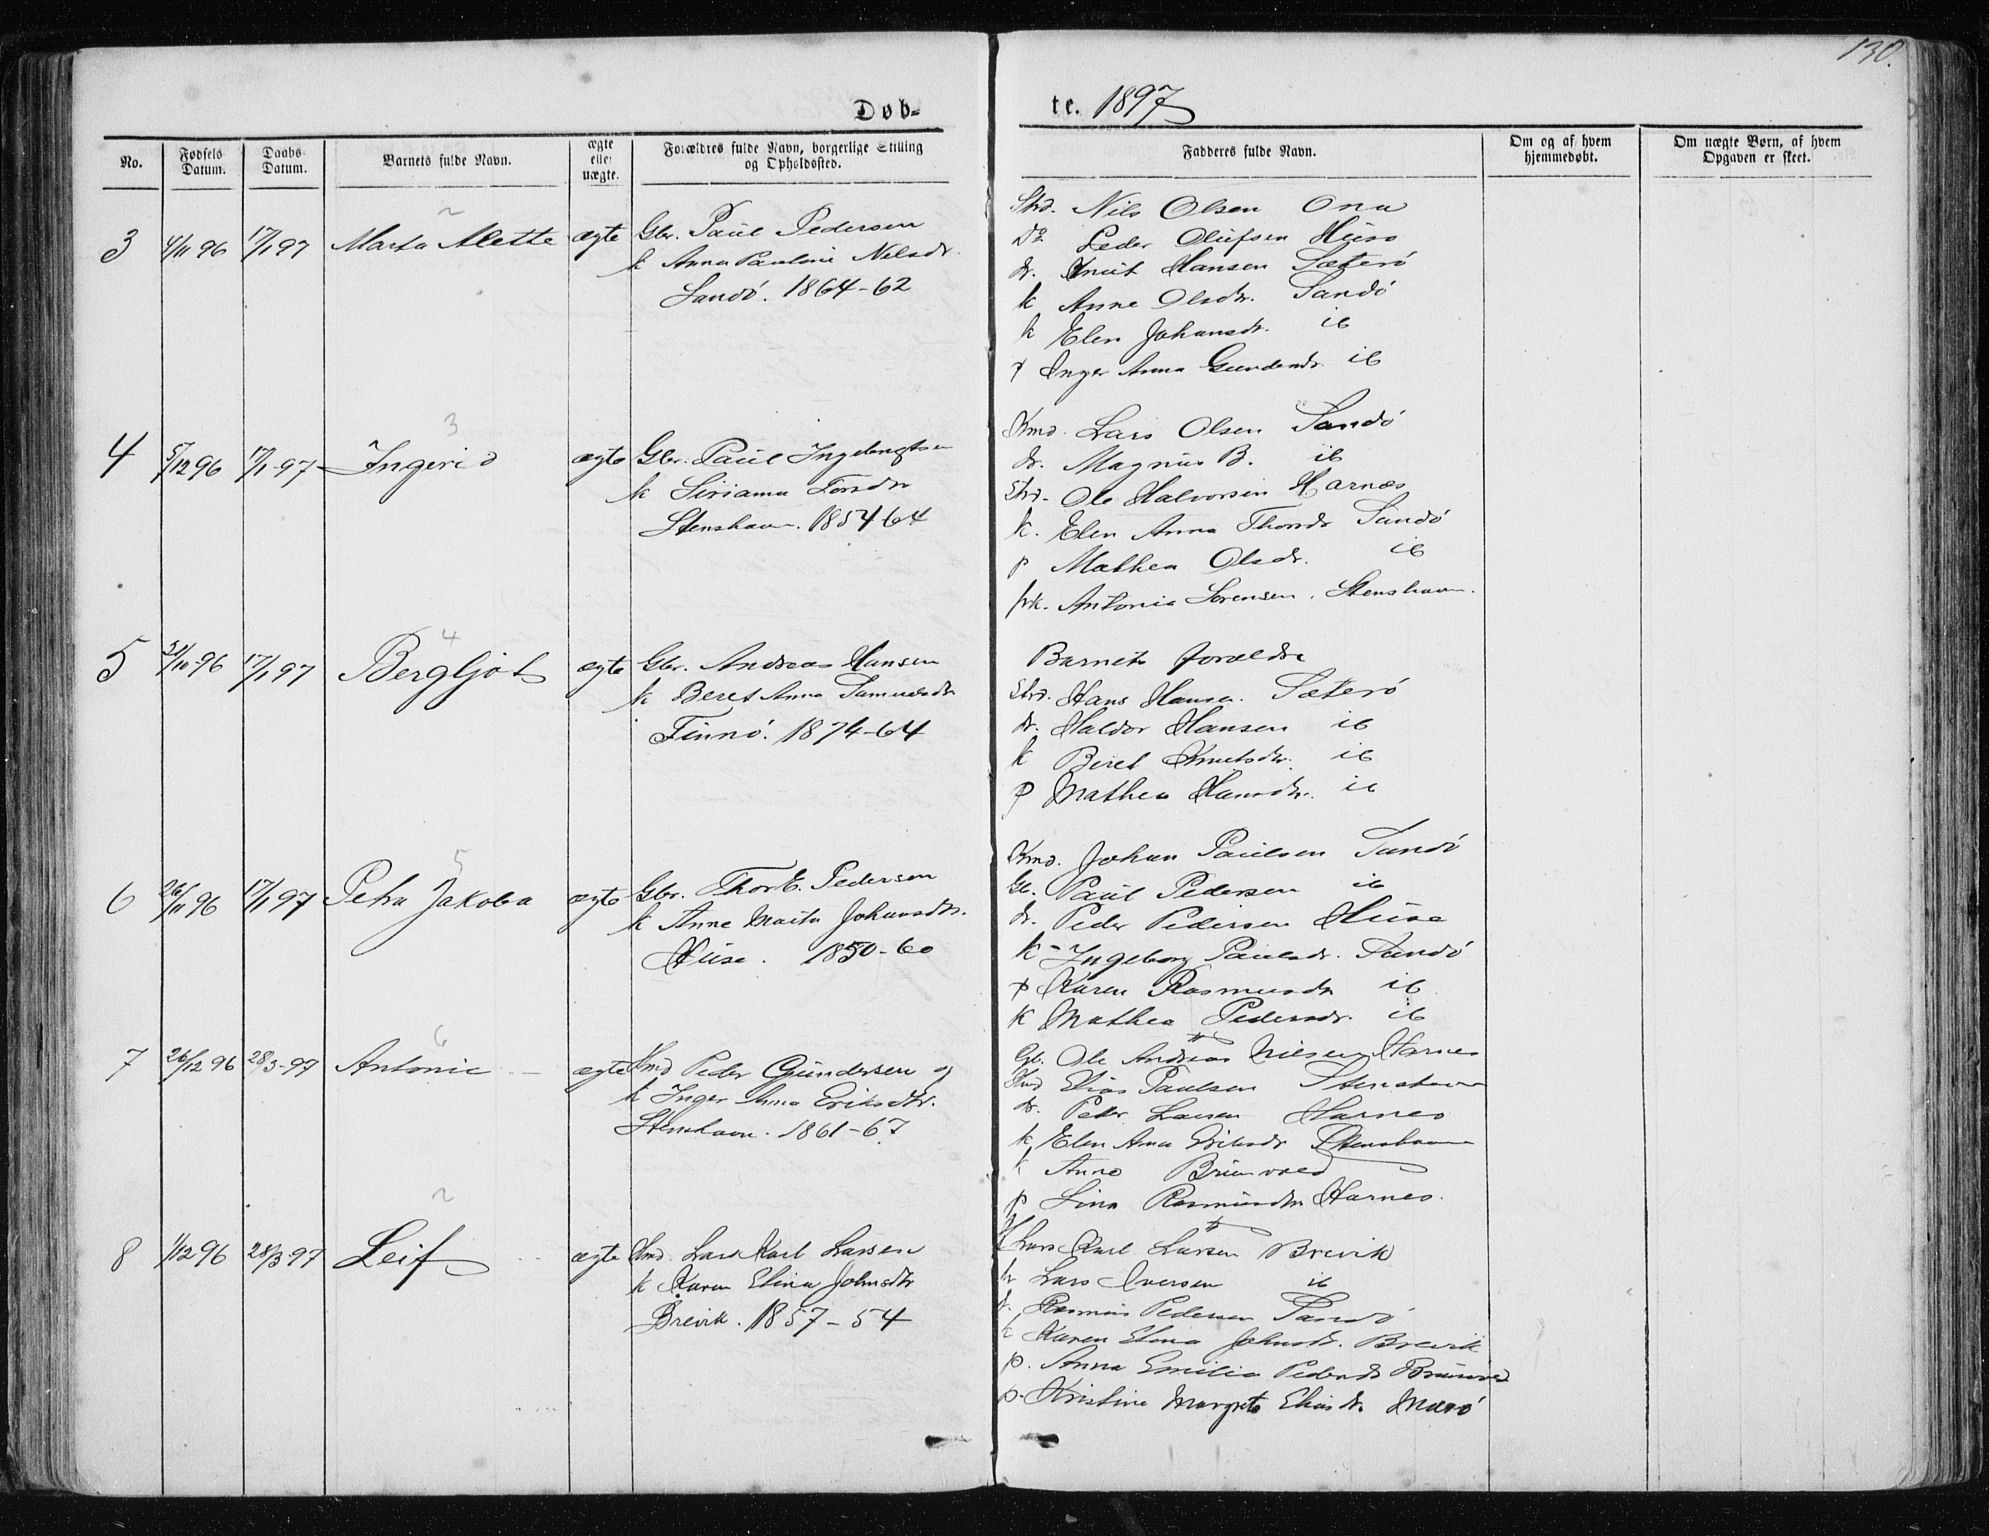 130.
Døb-
te. 1897
No.
Fødsels Datum.
Daabs Datum.
Barnets fulde Navn.
ægte eller uægte.
Forældres fulde Navn, borgerlige Stilling
og Opholdssted.
Fadderes fulde Navn.
Om og af hvem
hjemmedøbt.
Om uægte Børn, af hvem
Opgaven er skeet.
2
3 4/11 96 17/1 97 Marta Alette ægte Gbr. Paul Pedersen
k Anna Pauline Nilsdr.
Sandø. 1864-62
Strd. Nils Olsen Ona
Do Peder Olufsen Huso
dr. Knut Hansen Sæterø
k Anne Olsdtr. Sandø
k Elen Johansdr. ib
p Inger Anna Gundersdr. ib
3
4 5/12 96 17/1 97 Ingerid ægte Gbr. Paul Ingebrigtsen
k Siriana Torsdr
Stenshavn. 1854 64
Kmd. Lars Olsen Sandø
dr. Magnus B. ib
Strd. Ole Halvorsen Harnæs
k. Elen Anna Thorsdr Sandø
p Mathea Olsdr. ib
frk. Antonia Sørensen, Stenshavn.
4
5 31/10 96 17/1 97 Bergljot ægte Gbr. Andreas Hansen
k Beret Anna Samuelsdr
Finnø. 1874-64
Barnets forældre
Strd. Hans Hansen. Sæterø
dr. Haldor Hansen ib
k Beret Knutsdtr. ib
p Mathea Hansdtr. ib
5
6 26/11 96 17/1 97 Petra Jakoba ægte Gbr. Thorb. Pedersen
k Anne Marta Johansdtr.
Huse. 1850-60
Kmd. Johan Paulsen Sandø
Gb. Paul Pedersen ib
dr. Peder Pedersen Huse
k Ingeborg Paulsdr. Sandø
p Karen Rasmusdr ib
k Mathea Pedersdr. ib
6
7 26/12 96 28/3-97 Antonie ægte Kmd Peder Gundersen og
k Inger Anna Eriksdtr.
Stenshavn. 1861-67
Gb. Ole Andreas Nilsen Harnes
Kmd Elias Paulsen Stenshavn
dr. Peder Larsen Harnes
k Elen Anna Eriksdr Stenshavn
k Anne
p Lina Rasmusdtr Harnes.
2
8 1/12 96 28/3 97 Leif ægte Kmd. Lars Karl Larsen
k Karen Elina Johnsdtr
Brevik. 1857-54
Lars Karl Larsen Brevik
dr Lars Iversen ib
dr. Rasmus Pedersen Sandø
k Karen Elina Johnsdr. Brevik
p. Anna Emilia Pedersdr
p. Kristine Margrete Eliasdr.